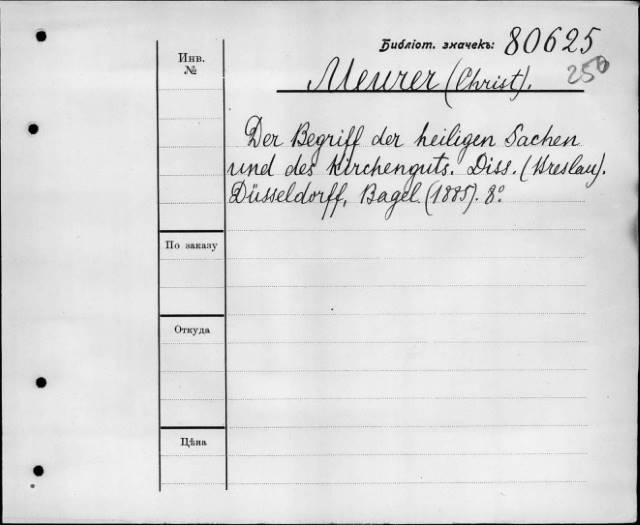 Библіот. значекъ: 80625
250
Инв.
№
Meurer (Christ).
Der Begriff der heiligen Sachen
und des Kirchenguts. Diss. (Breslau).
Düsseldorff, Bagel. (1885). 8°.
По заказу
Откуда
Цѣна